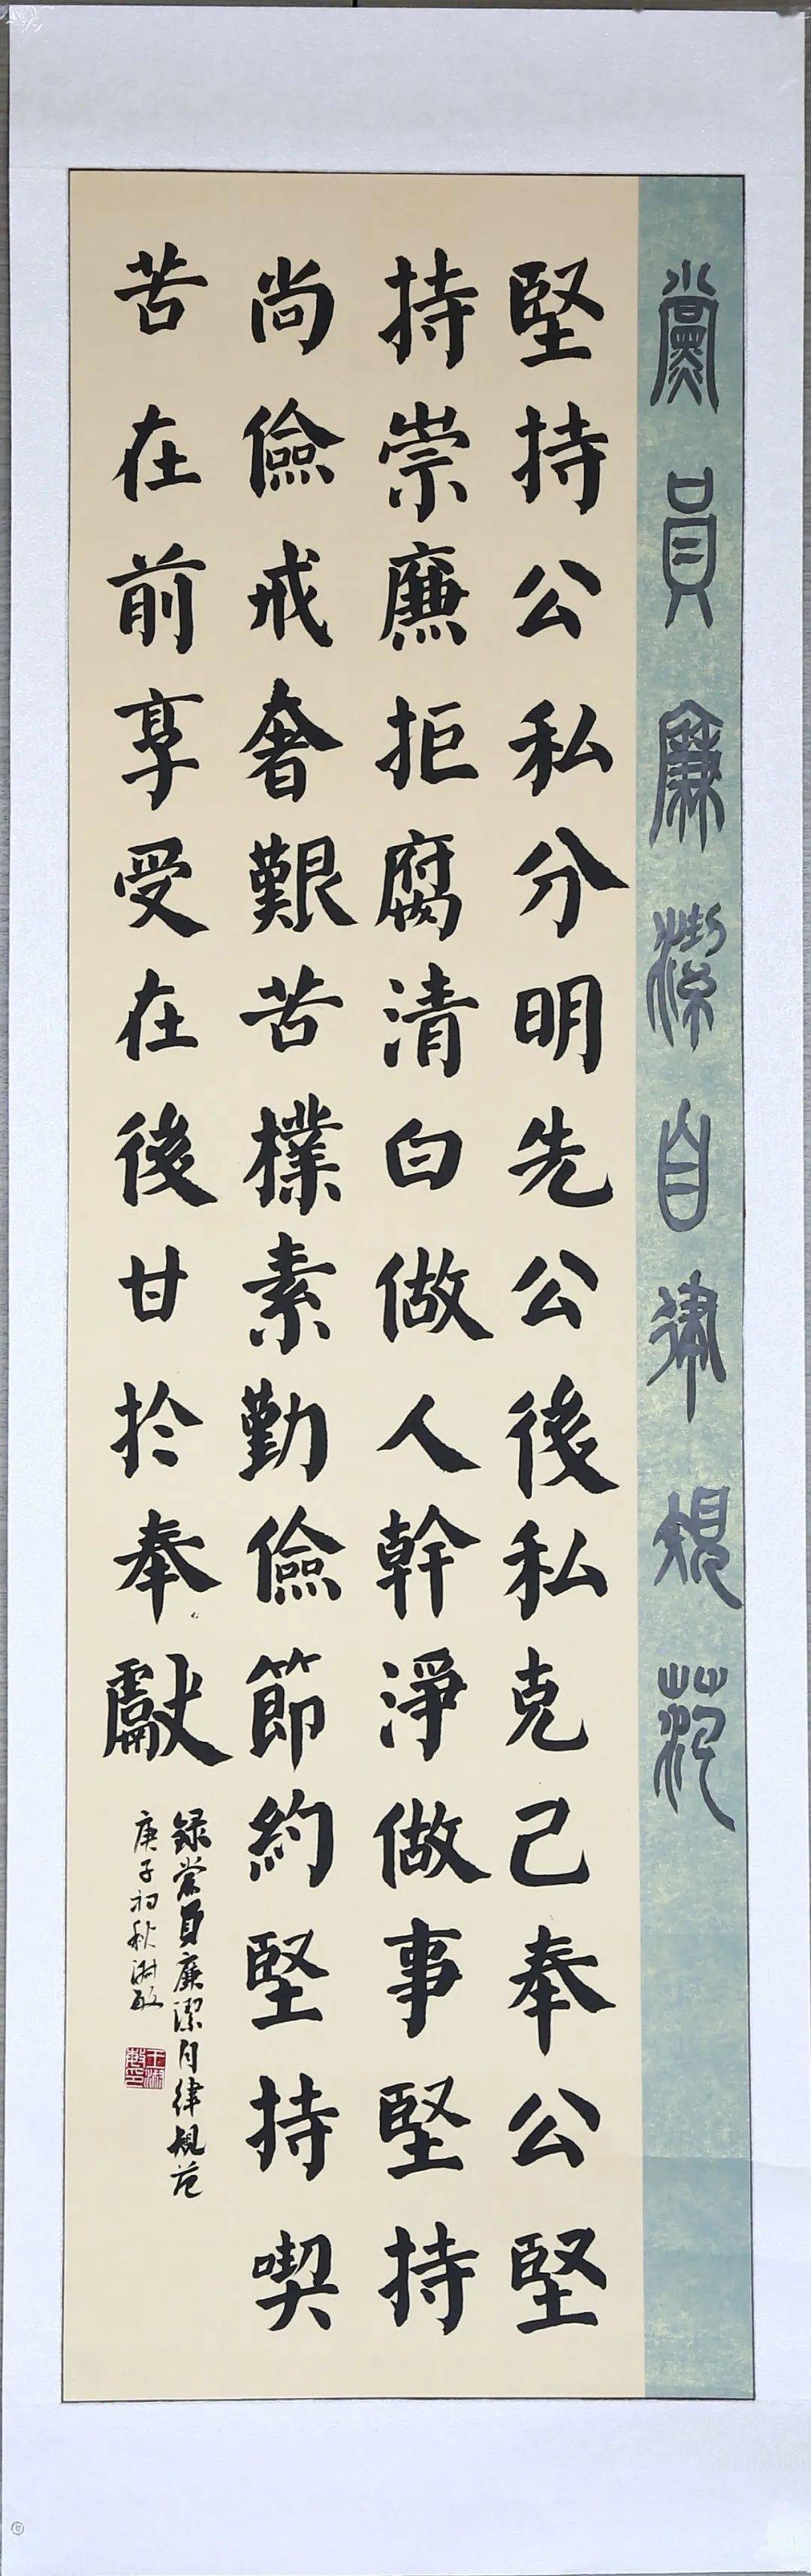 黨員廉潔自律規范
堅持公私分明先公後私克己奉公堅
持崇廉拒腐清白做人幹淨做事堅持
尚儉戒奢艱苦樸素勤儉節約堅持喫
苦在前享受在後甘於奉獻
録黨員廉潔自律規范
庚子初秋淑敏
王淑敏印